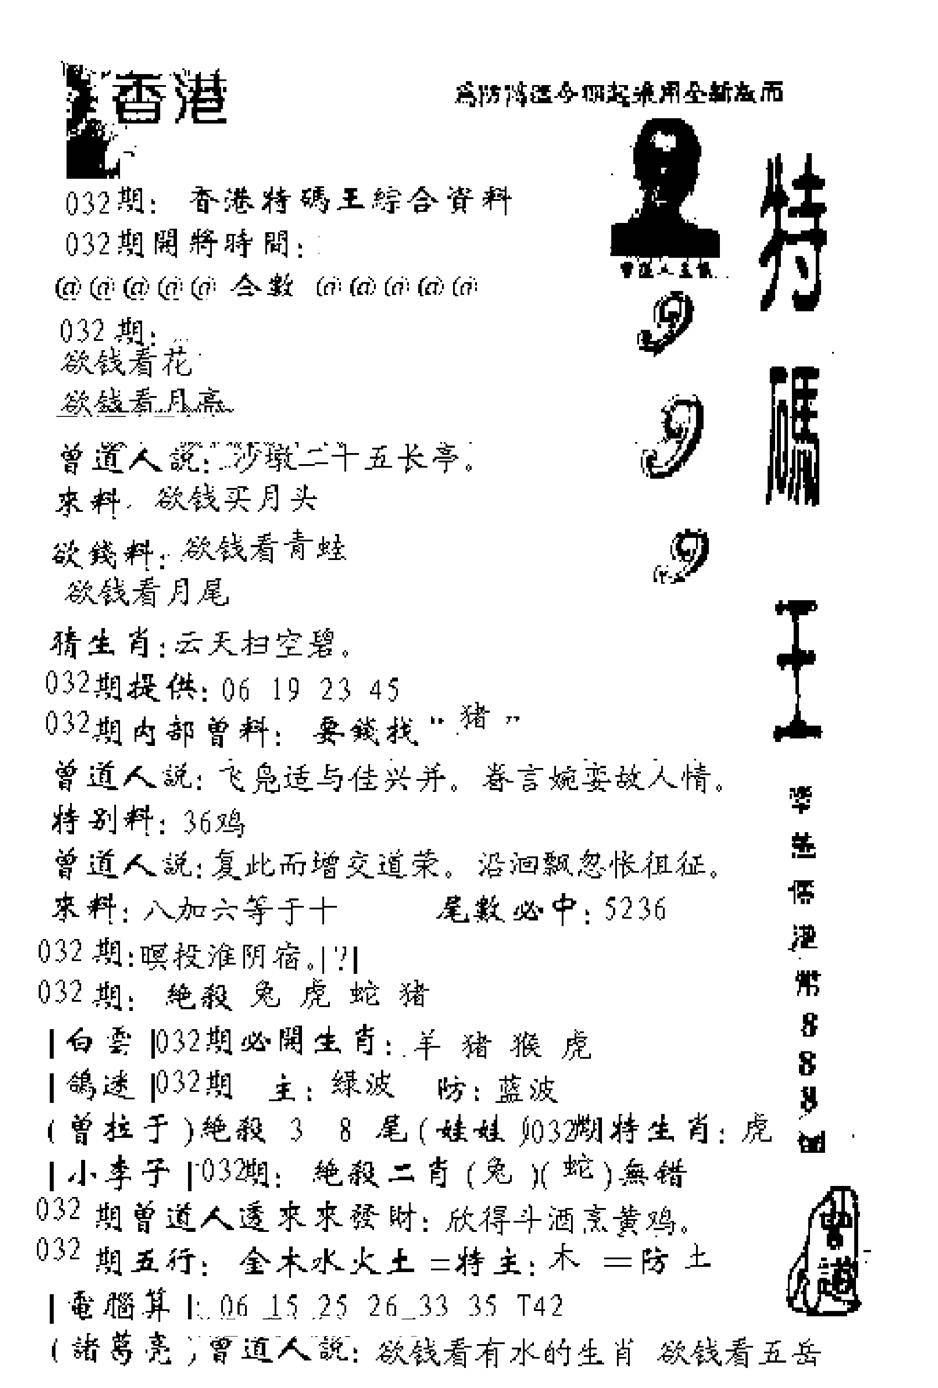 香港
為防偽造今期起采用全新版面
032期： 香港特碼王綜合資料
032期開將時間：
@@@@@ 合數 @@@@@
032期：
欲钱看花
欲钱看月亮
曾道人説：沙墩二十五长亭。
來料 欲钱买月头
欲錢料：欲钱看青蛙
欲钱看月尾
猜生肖：云天扫空碧。
032期提供：06 19 23 45
032期内部曾料： 要錢找“猪”
曾道人説：飞凫适与佳兴并。眷言婉娈故人情。
特别料：36鸡
曾道人説：复此而增交道荣。沿洄飘忽怅徂征。
來料：八加六等于十 尾數必中：5236
032期：暝投淮阴宿。|?|
032期： 絶殺 兔 虎 蛇 猪
|白雲|032期必開生肖：羊 猪 猴 虎
|鴿迷|032期 主：绿波 防：蓝波
(曾拉于)絶殺 3 8 尾(娃娃)032期特生肖：虎
|小李子|032期： 絶殺二肖(兔)(蛇)無错
032期曾道人透來來發財：欣得斗酒烹黄鸡。
032期五行： 金木水火土=特主：木 =防 土
|電腦算|：06 15 25 26 33 35 T42
(諸葛亮)曾道人説：欲钱看有水的生肖 欲钱看五岳
曾道人主
9
9
9
特
碼
王
8
8
8
曾
道